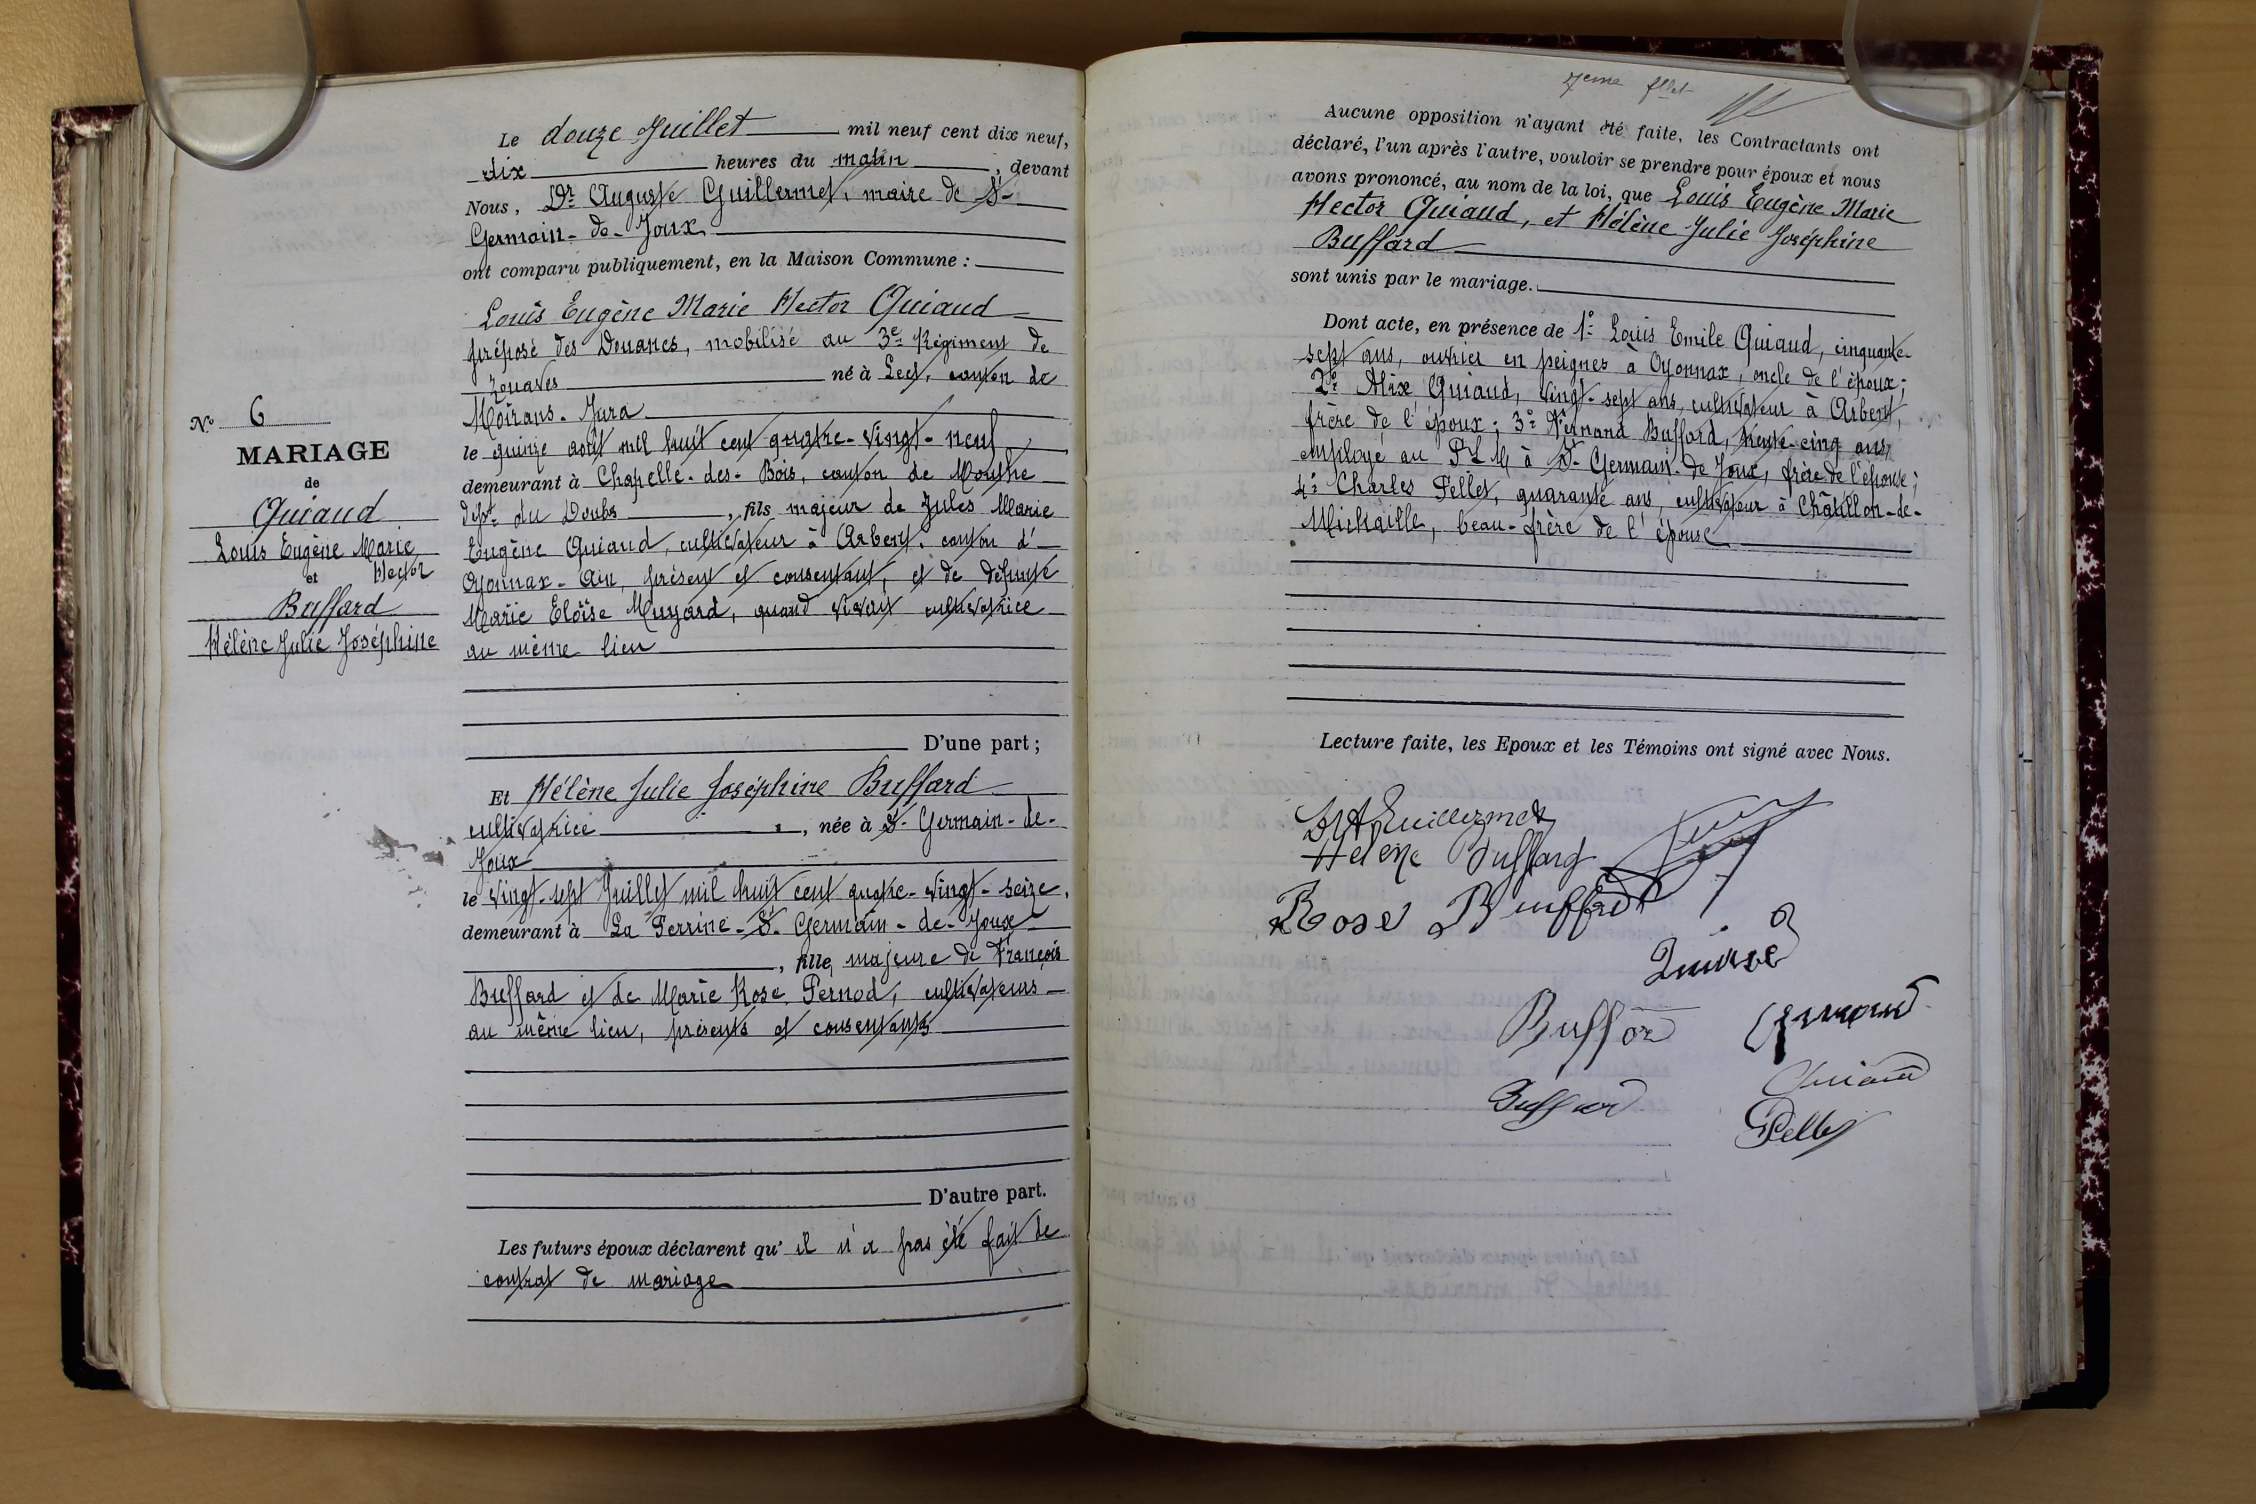 N° 6
MARIAGE
de
Guiaud
Louis Eugène Marie
Hector
et
Buffard
Hélène Julie Joséphine
Le douze Juillet mil neuf cent dix neuf,
dix heures du matin, devant
Nous, Dr Auguste Guillermet, maire de St-
Germain-de-Joux
ont comparu publiquement, en la Maison Commune :
Louis Eugène Marie Hector Guiaud
préposé des Douanes, mobilisé au 3e Régiment de
Zouaves né à Lect, canton de
Moirans-Jura
le quinze août mil huit cent quatre-vingt-neuf
demeurant à Chapelle-des-Bois, canton de Mouthe
dept du Doubs, fils majeur de Jules Marie
Eugène Guiaud, cultivateur à Arbent, canton d'
Oyonnax-Ain, présent et consentant, et de défunte
Marie Eloïse Muyard, quand vivait cultivatrice
au même lieu
D'une part ;
Et Hélène Julie Joséphine Buffard
cultivatrice, née à St-Germain-de-
Joux
le vingt-sept Juillet mil huit cent quatre-vingt-seize,
demeurant à La Perrine-St-Germain-de-Joux
, fille majeure de François
Buffard et de Marie Rose Pernod, cultivateurs
au même lieu, présents et consentants
D'autre part.
Les futurs époux déclarent qu'il n'a pas été fait de
contrat de mariage
7eme fllet
Aucune opposition n'ayant été faite, les Contractants ont
déclaré, l'un après l'autre, vouloir se prendre pour époux et nous
avons prononcé, au nom de la loi, que Louis Eugène Marie
Hector Guiaud, et Hélène Julie Joséphine
Buffard
sont unis par le mariage.
Dont acte, en présence de 1° Louis Emile Guiaud, cinquante-
sept ans, ouvrier en peignes à Oyonnax, oncle de l'époux ;
2° Alix Guiaud, vingt-sept ans, cultivateur à Arbent,
frère de l'époux ; 3° Fernand Buffard, trente-cinq ans,
employé au P L M à St-Germain-de-Joux, frère de l'épouse ;
4° Charles Pellet, quarante ans, cultivateur à Châtillon-de-
Michaille, beau-frère de l'épouse
Lecture faite, les Epoux et les Témoins ont signé avec Nous.
Dr A Guillermet
Hélène Buffard
Rose Buffard
Guiaud
Buffard
Guiaud
Buffard
Pellet